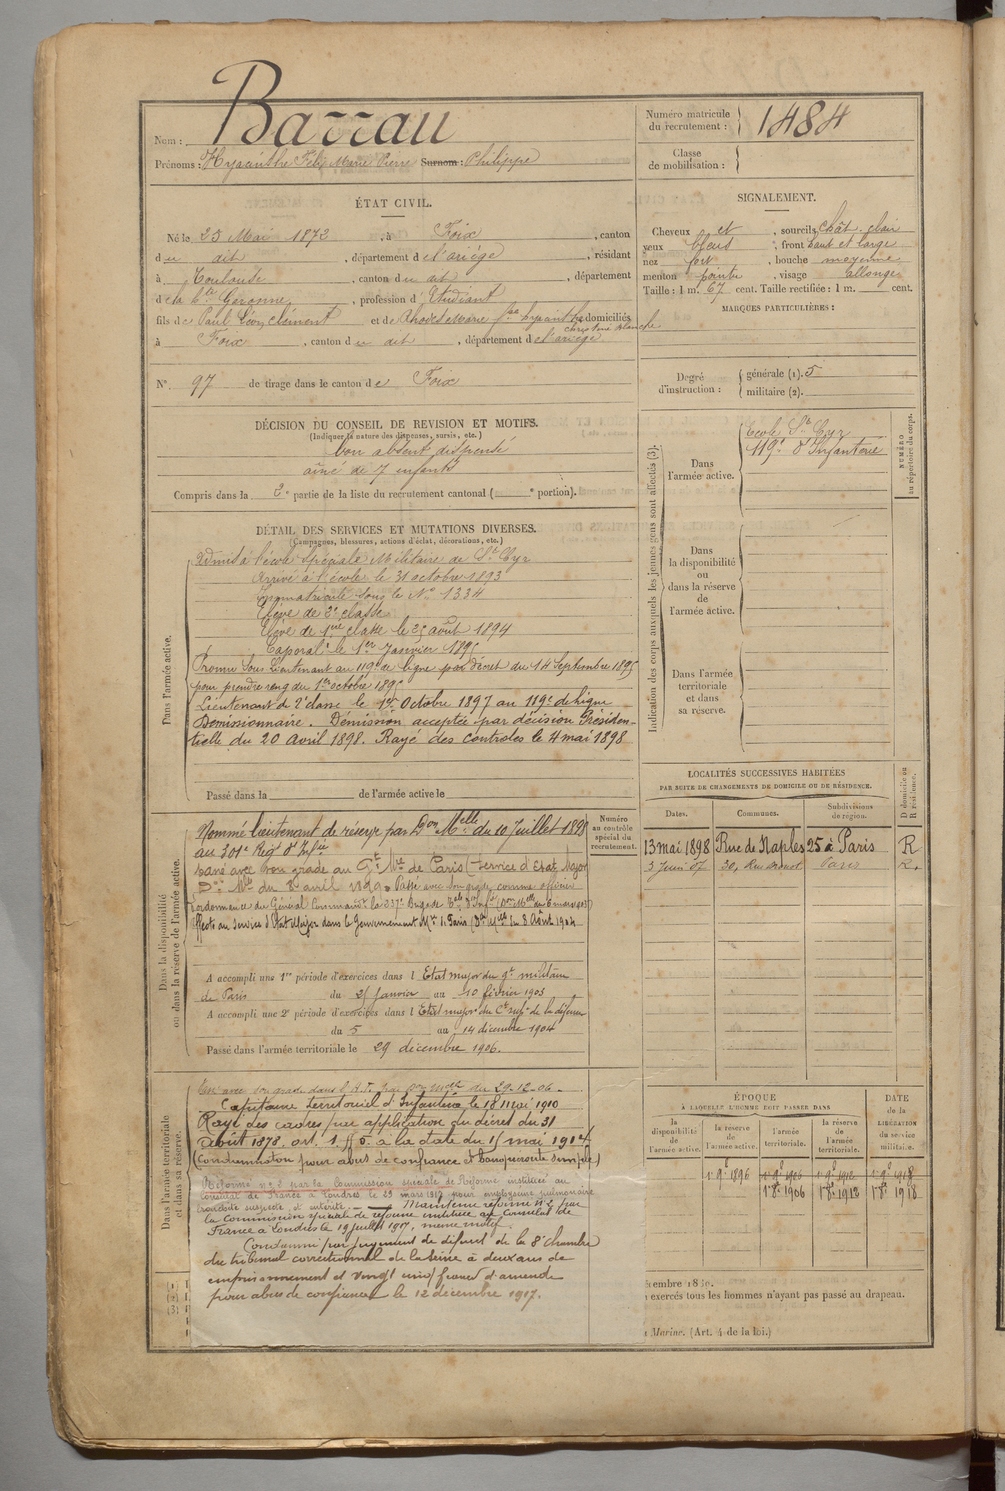 Nom : Barrau
Prénoms : Hyacinthe Félix Marie Pierre Surnom : Philippe
Numéro matricule du recrutement : 1484
Classe de mobilisation :
ÉTAT CIVIL.
Né le 25 Mai 1872, à Foix, canton
du dit, département de l'ariége, résidant
à Toulouse, canton du dit, département
de la Hte Garonne, profession d'Etudiant
fils de Paul Léon Clément et de Rhodes Marie domiciliés
à Foix, canton du dit, département de l'ariége
N° 97 de tirage dans le canton de Foix
SIGNALEMENT.
Cheveux et, sourcils chât. clair
yeux bleus, front haut et large
nez fort, bouche moyenne
menton pointu, visage allongé
Taille : 1 m. 67 cent. Taille rectifiée : 1 m. cent.
MARQUES PARTICULIÈRES :
Degré d'instruction : générale (1). 5
militaire (2).
DÉCISION DU CONSEIL DE REVISION ET MOTIFS.
(Indiquer la nature des dispenses, sursis, etc.)
bon absent dispensé
aîné de 7 enfants
Compris dans la 2e partie de la liste du recrutement cantonal ( e portion).
DÉTAIL DES SERVICES ET MUTATIONS DIVERSES.
(Campagnes, blessures, actions d'éclat, décorations, etc.)
Dans l'armée active.
Admis à l'école spéciale Militaire de St Cyr
Arrivé à l'école le 31 octobre 1893
Immatriculé sous le No 1334
Elève de 2e classe
Elève de 1ère classe le 25 août 1894
Caporal le 1er Janvier 1895
Promu Sous Lieutenant au 119e de ligne par décret du 14 Septembre 1895
pour prendre rang du 1er octobre 1895
Lieutenant de 2e classe le 1er Octobre 1897 au 119e de ligne
Démissionnaire. Démission acceptée par décision Présiden-
tielle du 20 avril 1898. Rayé des controles le 4 mai 1898
Passé dans la de l'armée active le
Indication des corps auxquels les jeunes gens sont affectés (3).
Dans l'armée active.
Ecole St Cyr
119e d'Infanterie
NUMÉRO au répertoire du corps.
Dans la disponibilité ou dans la réserve de l'armée active.
Dans l'armée territoriale et dans sa réserve.
Dans la disponibilité ou dans la réserve de l'armée active.
Nommé lieutenant de réserve par Don Melle du 10 Juillet 1898
au 301e Régt d'Infie
Passé avec son grade au Gt Mre de Paris (Service d'Etat Major
Don Mlle du 8 avril 1899. Passé avec son grade comme officier
Affecté au Service d'Etat Major dans le Gouvernement Mre de Paris (Don Melle du 8 Août 1904
A accompli une 1re période d'exercices dans l'Etat major du gt militaire
de Paris du 25 Janvier au 10 février 1903
A accompli une 2e période d'exercices dans l'Etat major
du 5 au 14 décembre 1904
Passé dans l'armée territoriale le 29 décembre 1906.
Numéro au contrôle spécial du recrutement.
LOCALITÉS SUCCESSIVES HABITÉES
PAR SUITE DE CHANGEMENTS DE DOMICILE OU DE RÉSIDENCE.
Dates. Communes. Subdivisions de région. D domicile ou R résidence.
13 mai 1898 Rue de Naples 25 à Paris R
3 Juin 07 30, Rue Drouot Paris R.
Dans l'armée territoriale et dans sa réserve.
avec son grade dans l'A.T. par Don Melle du 29-12-06
Capitaine territorial d'Infanterie le 18 mai 1910
Rayé des cadres par application du décret du 31
août 1878. art. 1 § 5. à la date du 15 mai 1914
(condamnation pour abus de confiance et banqueroute simple)
Réformé n° 2 par la Commission spéciale de Réforme instituée au
Consulat de France à Londres le 29 mars 1917 pour emphysème pulmonaire
bronchite suspecte et entérite. — Maintenu réformé n° 2 par
la Commission spéciale de réforme instituée au Consulat de
France à Londres le 19 juillet 1917, même motif.
Condamné par jugement de défaut de la 8e chambre
du tribunal correctionnel de la Seine à deux ans de
emprisonnement et vingt cinq francs d'amende
pour abus de confiance le 12 décembre 1917.
ÉPOQUE
À LAQUELLE L'HOMME DOIT PASSER DANS
la disponibilité de l'armée active. la réserve de l'armée active. l'armée territoriale. la réserve de l'armée territoriale.
DATE de la LIBÉRATION du service militaire.
1er 9e 1896 1er 9e 1906 1er 9e 1912 1er 9e 1918
1er 8e 1906 1er 8e 1912 1er 8e 1918
(1)
(2)
(3)
exercés tous les hommes n'ayant pas passé au drapeau.
Marine. (Art. 4 de la loi.)